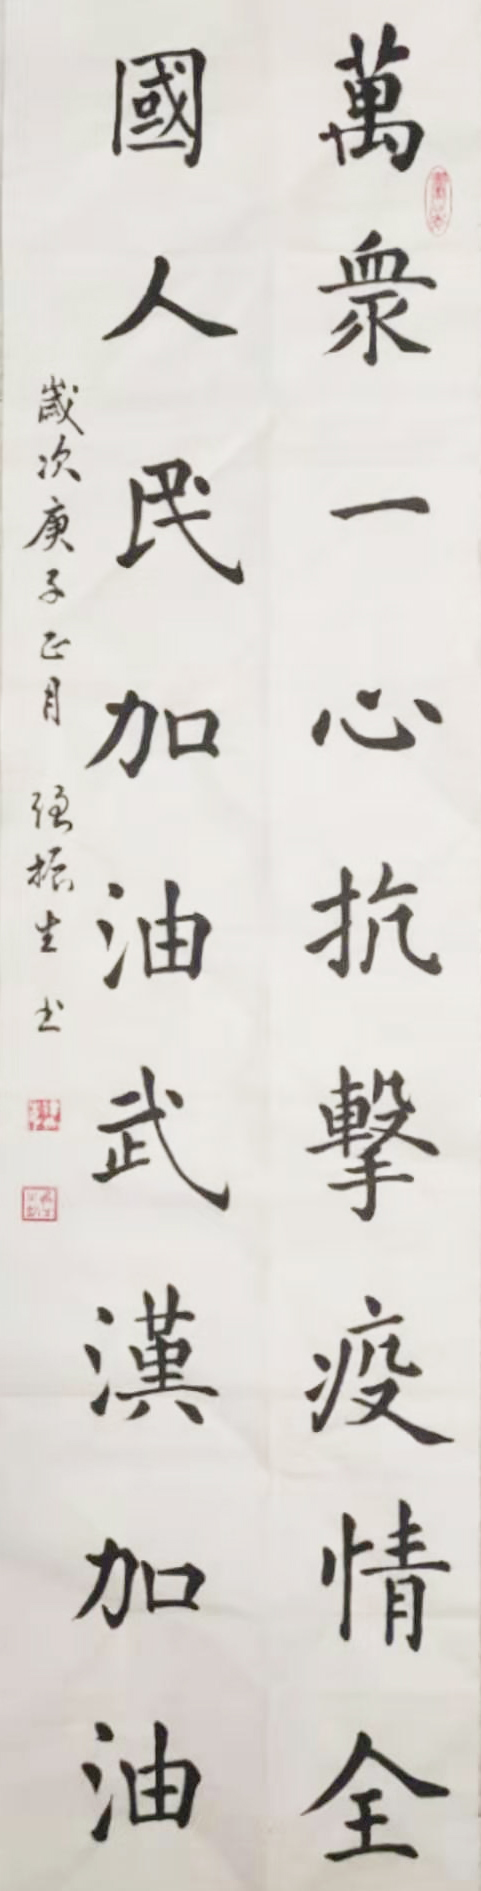 萬衆一心抗擊疫情全
國人民加油武漢加油
歲次庚子正月 強振生 书